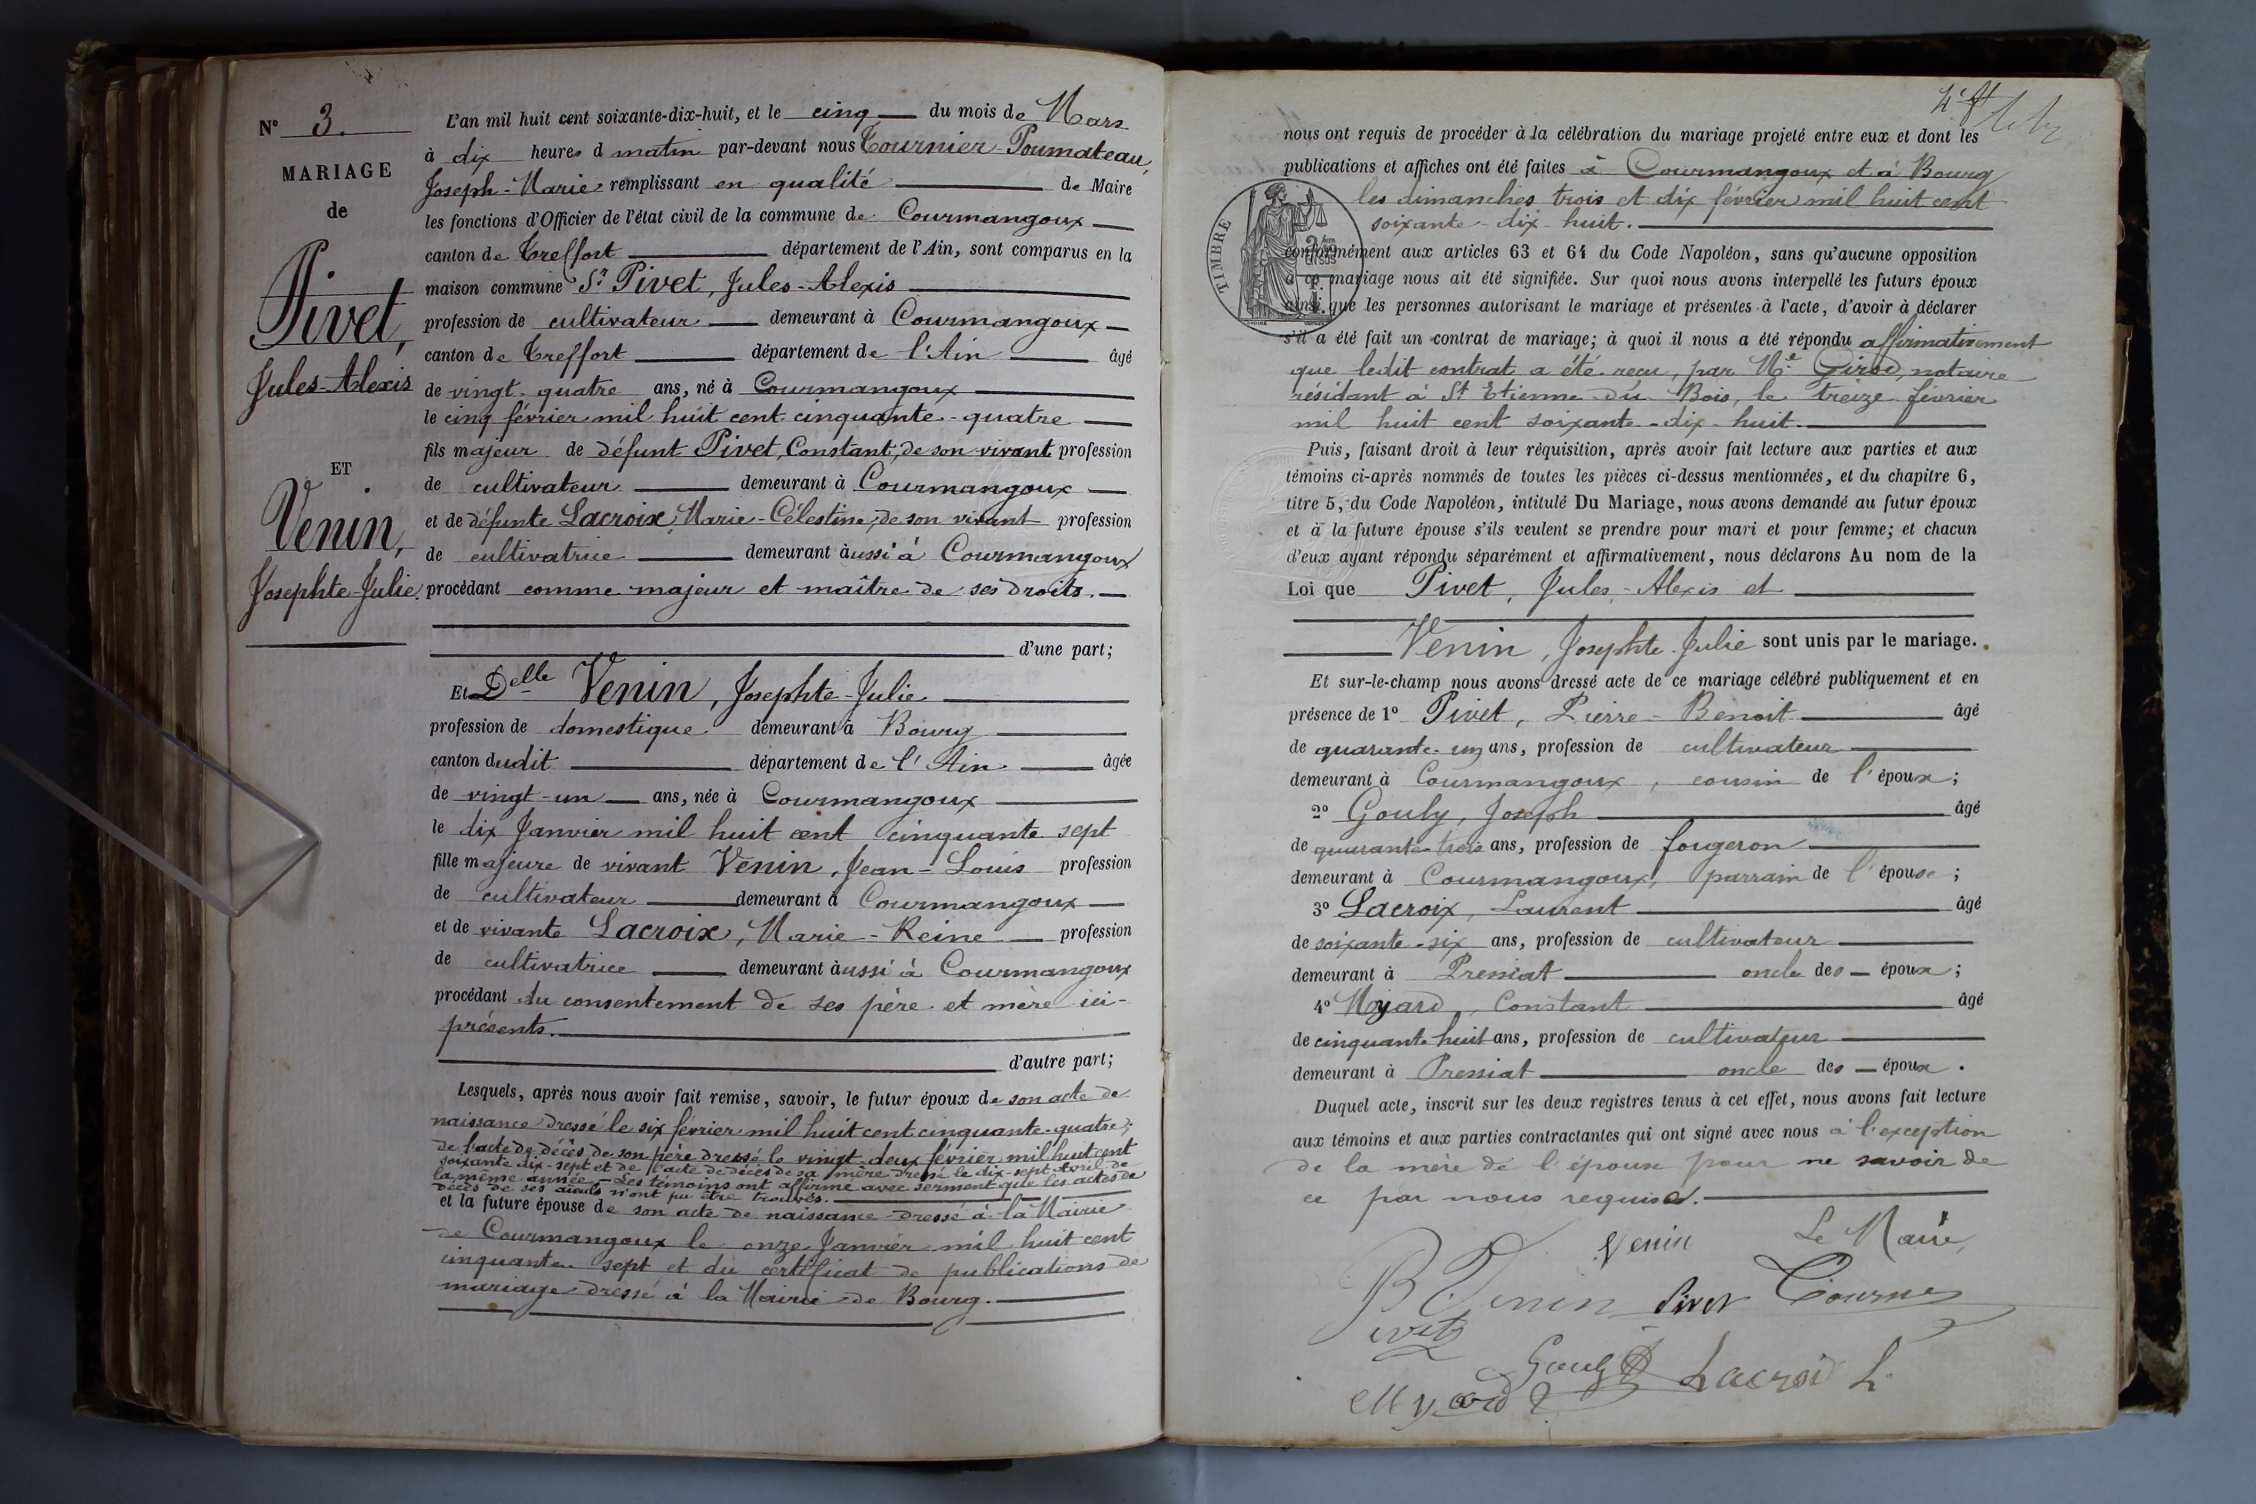 N° 3.
MARIAGE
de
Pivet,
Jules-Alexis
ET
Venin,
Josephte-Julie.
L'an mil huit cent soixante-dix-huit, et le cinq du mois de Mars
à dix heures d matin par-devant nous Tournier-Poumateau,
Joseph-Marie remplissant en qualité de Maire
les fonctions d'Officier de l'état civil de la commune de Courmangoux
canton de Treffort département de l'Ain, sont comparus en la
maison commune Sr Pivet, Jules-Alexis
profession de cultivateur demeurant à Courmangoux
canton de Treffort département de l'Ain âgé
de vingt-quatre ans, né à Courmangoux
le cinq février mil huit cent cinquante-quatre
fils majeur de défunt Pivet, Constant, de son vivant profession
de cultivateur demeurant à Courmangoux
et de défunte Lacroix, Marie-Célestine, de son vivant profession
de cultivatrice demeurant aussi à Courmangoux
procédant comme majeur et maître de ses droits.
d'une part;
Et Delle Venin, Josephte-Julie
profession de domestique demeurant à Bourg
canton dudit département de l'Ain âgée
de vingt-un ans, née à Courmangoux
le dix Janvier mil huit cent cinquante sept
fille majeure de vivant Venin, Jean-Louis profession
de cultivateur demeurant à Courmangoux
et de vivante Lacroix, Marie-Reine profession
de cultivatrice demeurant aussi à Courmangoux
procédant du consentement de ses père et mère ici-
présents.
d'autre part;
Lesquels, après nous avoir fait remise, savoir, le futur époux de son acte de
naissance dressé le six février mil huit cent cinquante-quatre;
de l'acte de décès de son père dressé le vingt-deux février mil huit cent
soixante dix-sept et de l'acte de décès de sa mère dressé le dix-sept Avril de
la même année. Les témoins ont affirmé avec serment que les actes de
décès de ses aïeuls n'ont pu être trouvés.
et la future épouse de son acte de naissance dressé à la Mairie
de Courmangoux le onze Janvier mil huit cent
cinquante sept et du certificat de publications de
mariage dressé à la Mairie de Bourg.
nous ont requis de procéder à la célébration du mariage projeté entre eux et dont les
publications et affiches ont été faites à Courmangoux et à Bourg
les dimanches trois et dix février mil huit cent
soixante-dix-huit.
TIMBRE
conformément aux articles 63 et 64 du Code Napoléon, sans qu'aucune opposition
à ce mariage nous ait été signifiée. Sur quoi nous avons interpellé les futurs époux
ainsi que les personnes autorisant le mariage et présentes à l'acte, d'avoir à déclarer
s'il a été fait un contrat de mariage; à quoi il nous a été répondu affirmativement
que ledit contrat a été reçu, par Me Girod, notaire
résidant à St Etienne-du-Bois, le treize février
mil huit cent soixante-dix-huit.
Puis, faisant droit à leur réquisition, après avoir fait lecture aux parties et aux
témoins ci-après nommés de toutes les pièces ci-dessus mentionnées, et du chapitre 6,
titre 5, du Code Napoléon, intitulé Du Mariage, nous avons demandé au futur époux
et à la future épouse s'ils veulent se prendre pour mari et pour femme; et chacun
d'eux ayant répondu séparément et affirmativement, nous déclarons Au nom de la
Loi que Pivet, Jules-Alexis et
Venin, Josephte-Julie sont unis par le mariage.
Et sur-le-champ nous avons dressé acte de ce mariage célébré publiquement et en
présence de 1° Pivet, Pierre-Benoit âgé
de quarante-un ans, profession de cultivateur
demeurant à Courmangoux, cousin de l'époux;
2° Gouly, Joseph âgé
de quarante trois ans, profession de forgeron
demeurant à Courmangoux, parrain de l'épouse;
3° Lacroix, Laurent âgé
de soixante-six ans, profession de cultivateur
demeurant à Pressiat oncle des époux;
4° Myard, Constant âgé
de cinquante huit ans, profession de cultivateur
demeurant à Pressiat oncle des époux.
Duquel acte, inscrit sur les deux registres tenus à cet effet, nous avons fait lecture
aux témoins et aux parties contractantes qui ont signé avec nous à l'exception
de la mère de l'épouse pour ne savoir de
ce par nous requise.
Venin Le Maire,
B Venin Pivet Tournier
Pivet
Gouly Lacroix L
Myard